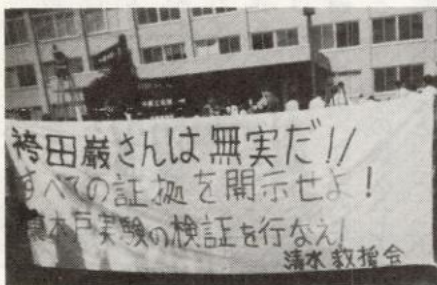 袴田巖さんは無実だ!!
すべての証拠を開示せよ!
裏木戸実験の検証を行なえ!
清水救援会